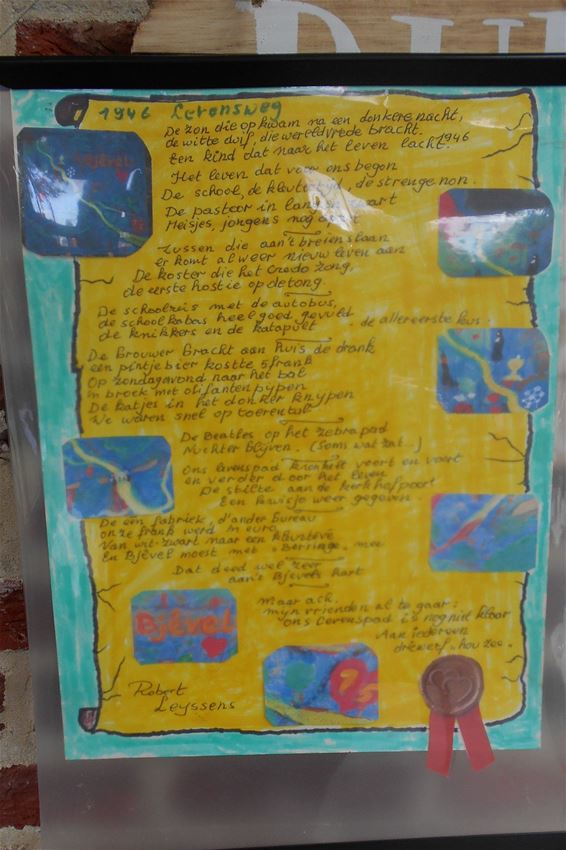 1946 Levensweg
De zon die opkwam na een donkere nacht,
de witte duif, die wereldvrede bracht.
Een kind dat naar het leven lacht. 1946
Het leven dat voor ons begon
De school, de kleutertijd, de strenge non.
De pastoor in lang zwart
Meisjes, jongens nog apart
Zussen die aan't breien slaan
er komt alweer nieuw leven aan
De koster die het Credo zong,
de eerste hostie op de tong.
De schoolreis met de autobus,
de schoolkabas heel goed gevuld
de knikkers en de katapult .. de allereerste kus
De brouwer bracht aan huis de drank
een pintje bier kostte 5 frank
Op zondagavond naar het bal
in broek met olifantenpypen
De katjes in het donker knypen
We waren snel op toerental
De Beatles op het zebrapad
Nuchter blijven. (Soms wat zat...)
Ons levenspad kronkelt voort en voort
en verder door het leven
De stilte aan de kerkhofpoort
Een kruisje weer gegeven
De een fabriek, d'ander bureau
onze frank werd in euro
Van wit-zwart naar een kleurtévé
En Bjèvel moest met "Berringe" mee
Dat deed wel zeer
aan't Bjèvels hart
Maar ach.
mijn vrienden al te gaar:
ons Levenspad is nog niet klaar
Aan iedereen
driewerf "hou zee"
Bjèvel
75
Robert
Leyssens